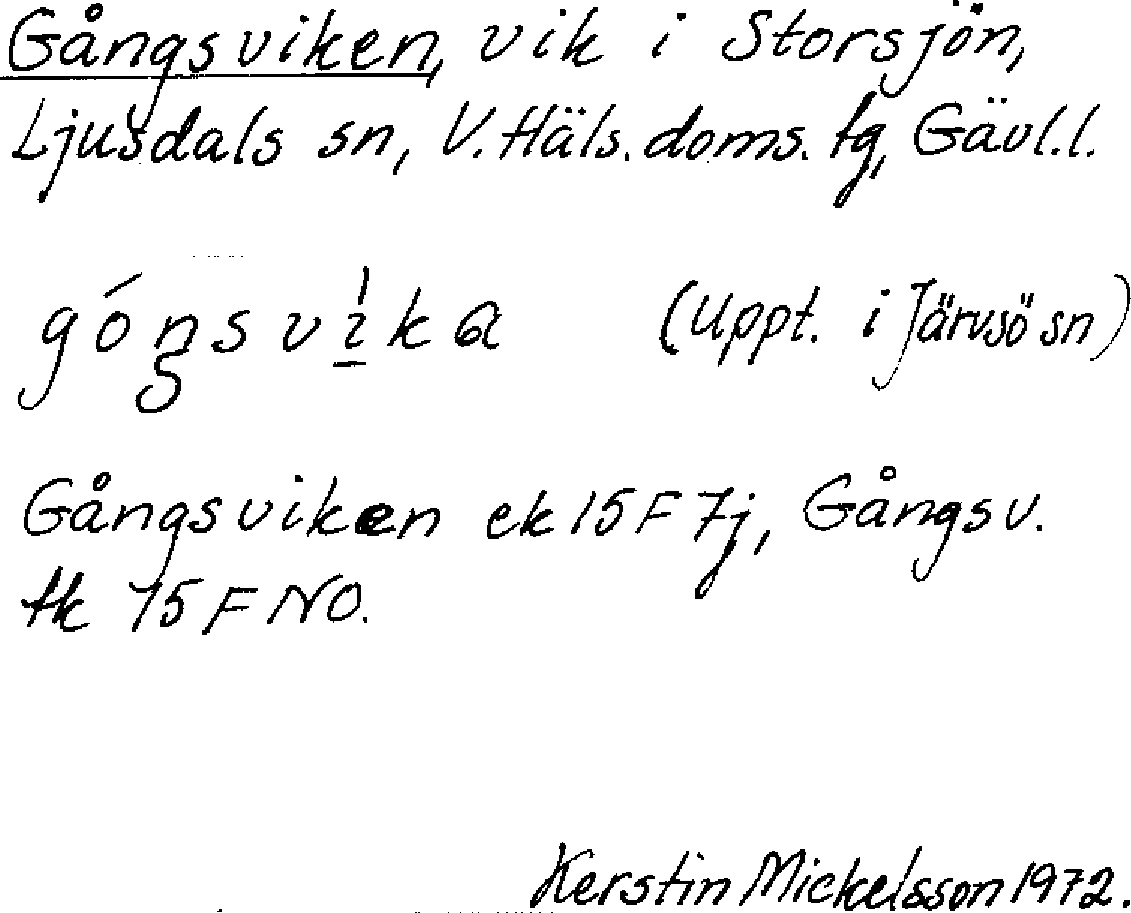 Gångsviken, vik i Storsjön,
Ljusdals sn, V. Häls. doms. tg, Gävl. l.
góŋsvìka (Uppt. i Järvsö sn)
Gångsviken ek 15 F 7j, Gångsv.
tk 15 F NO.
Kerstin Mickelsson 1972.